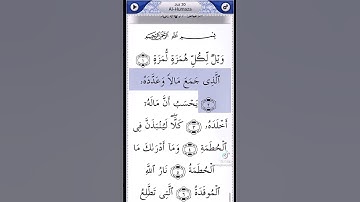 Juz 30
Al-Humaza
بِسْمِ ٱللَّهِ ٱلرَّحْمَٰنِ ٱلرَّحِيمِ
وَيْلٌ لِّكُلِّ هُمَزَةٍ لُّمَزَةٍ ١
ٱلَّذِى جَمَعَ مَالًا وَعَدَّدَهُۥ
٢ يَحْسَبُ أَنَّ مَالَهُۥٓ
أَخْلَدَهُۥ ٣ كَلَّا لَيُنۢبَذَنَّ فِى
ٱلْحُطَمَةِ ٤ وَمَآ أَدْرَىٰكَ مَا
ٱلْحُطَمَةُ ٥ نَارُ ٱللَّهِ
ٱلْمُوقَدَةُ ٦ ٱلَّتِى تَطَّلِعُ